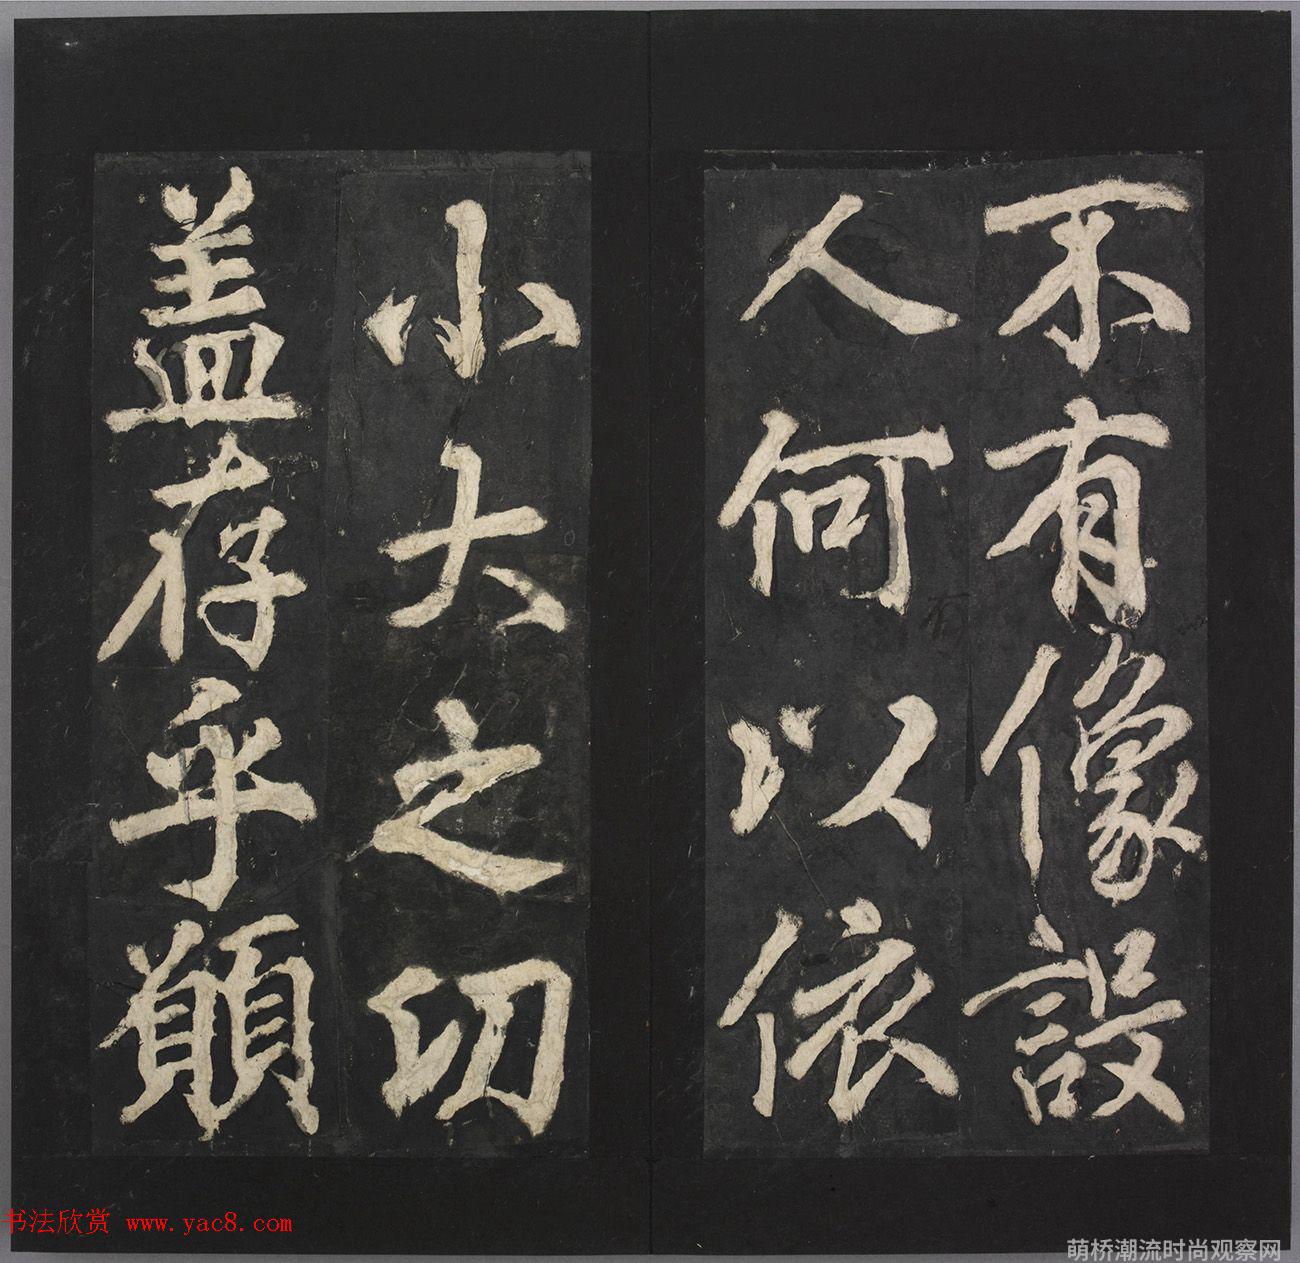 不有像設
人何以依
小大之切
盖存乎願
书法欣赏 www.yac8.com
萌桥潮流时尚观察网